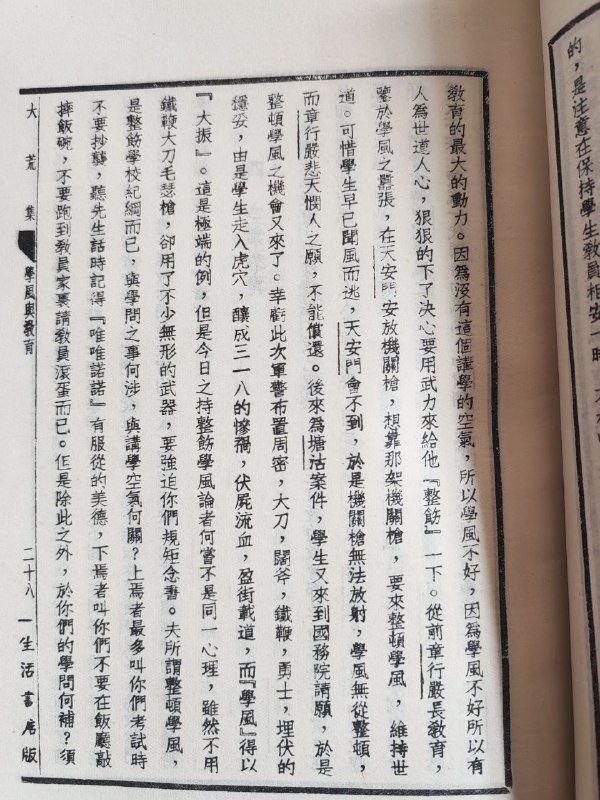 的，是注意在保持學生敎員相安一時，
敎育的最大的動力。因爲沒有這個講學的空氣，所以學風不好，因爲學風不好所以有
人爲世道人心，狠狠的下了決心要用武力來給他『整飭』一下。從前章行嚴長敎育，
鑒於學風之囂張，在天安門安放機關槍，想靠那架機關槍，要來整頓學風，維持世
道。可惜學生早已聞風而逃，天安門會不到，於是機關槍無法放射，學風無從整頓，
而章行嚴悲天憫人之願，不能償還。後來爲塘沽案件，學生又來到國務院請願，於是
整頓學風之機會又來了。幸虧此次軍警布置周密，大刀，闊斧，鐵鞭，勇士，埋伏的
穩妥，由是學生走入虎穴，釀成三一八的慘禍，伏屍流血，盈街載道，而『學風』得以
『大振』。這是極端的例，但是今日之持整飭學風論者何嘗不是同一心理，雖然不用
鐵鞭大刀毛瑟槍，卻用了不少無形的武器，要強迫你們規矩念書。夫所謂整頓學風，
是整飭學校紀綱而已，與學問之事何涉，與講學空氣何關？上焉者最多叫你們考試時
不要抄襲，聽先生話時記得『唯唯諾諾』有服從的美德，下焉者叫你們不要在飯廳敲
摔飯碗，不要跑到敎員家裏請敎員滾蛋而已。但是除此之外，於你們的學問何補？須
大荒集　學風與敎育　二十八　—生活書店版